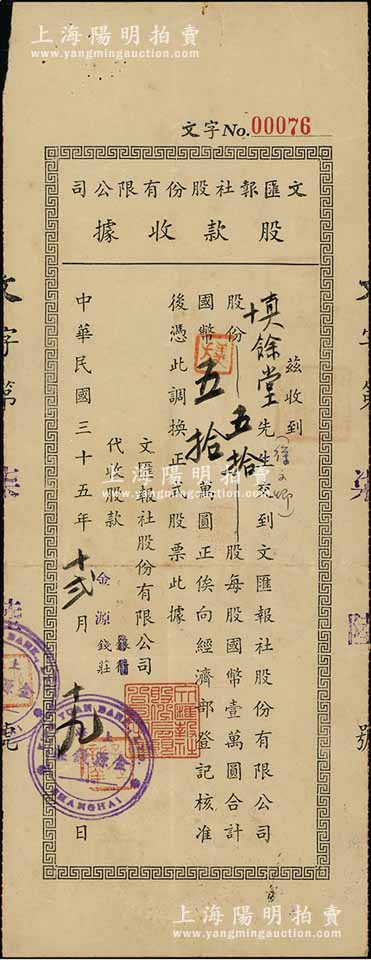 上海陽明拍賣
www.yangmingauction.com
文字No.00076
文匯報社股份有限公司
股款收據
茲收到
填餘堂先生交到文匯報社股份有限公司
股份五拾股每股國幣壹萬圓合計
國幣五拾萬圓正俟向經濟部登記核准
後憑此調換正式股票此據
文匯報社股份有限公司
代收股款金源錢莊
中華民國三十五年十弍月十九日
文字第
號
SHANGHAI
上海陽明拍賣
www.yangmingauction.com